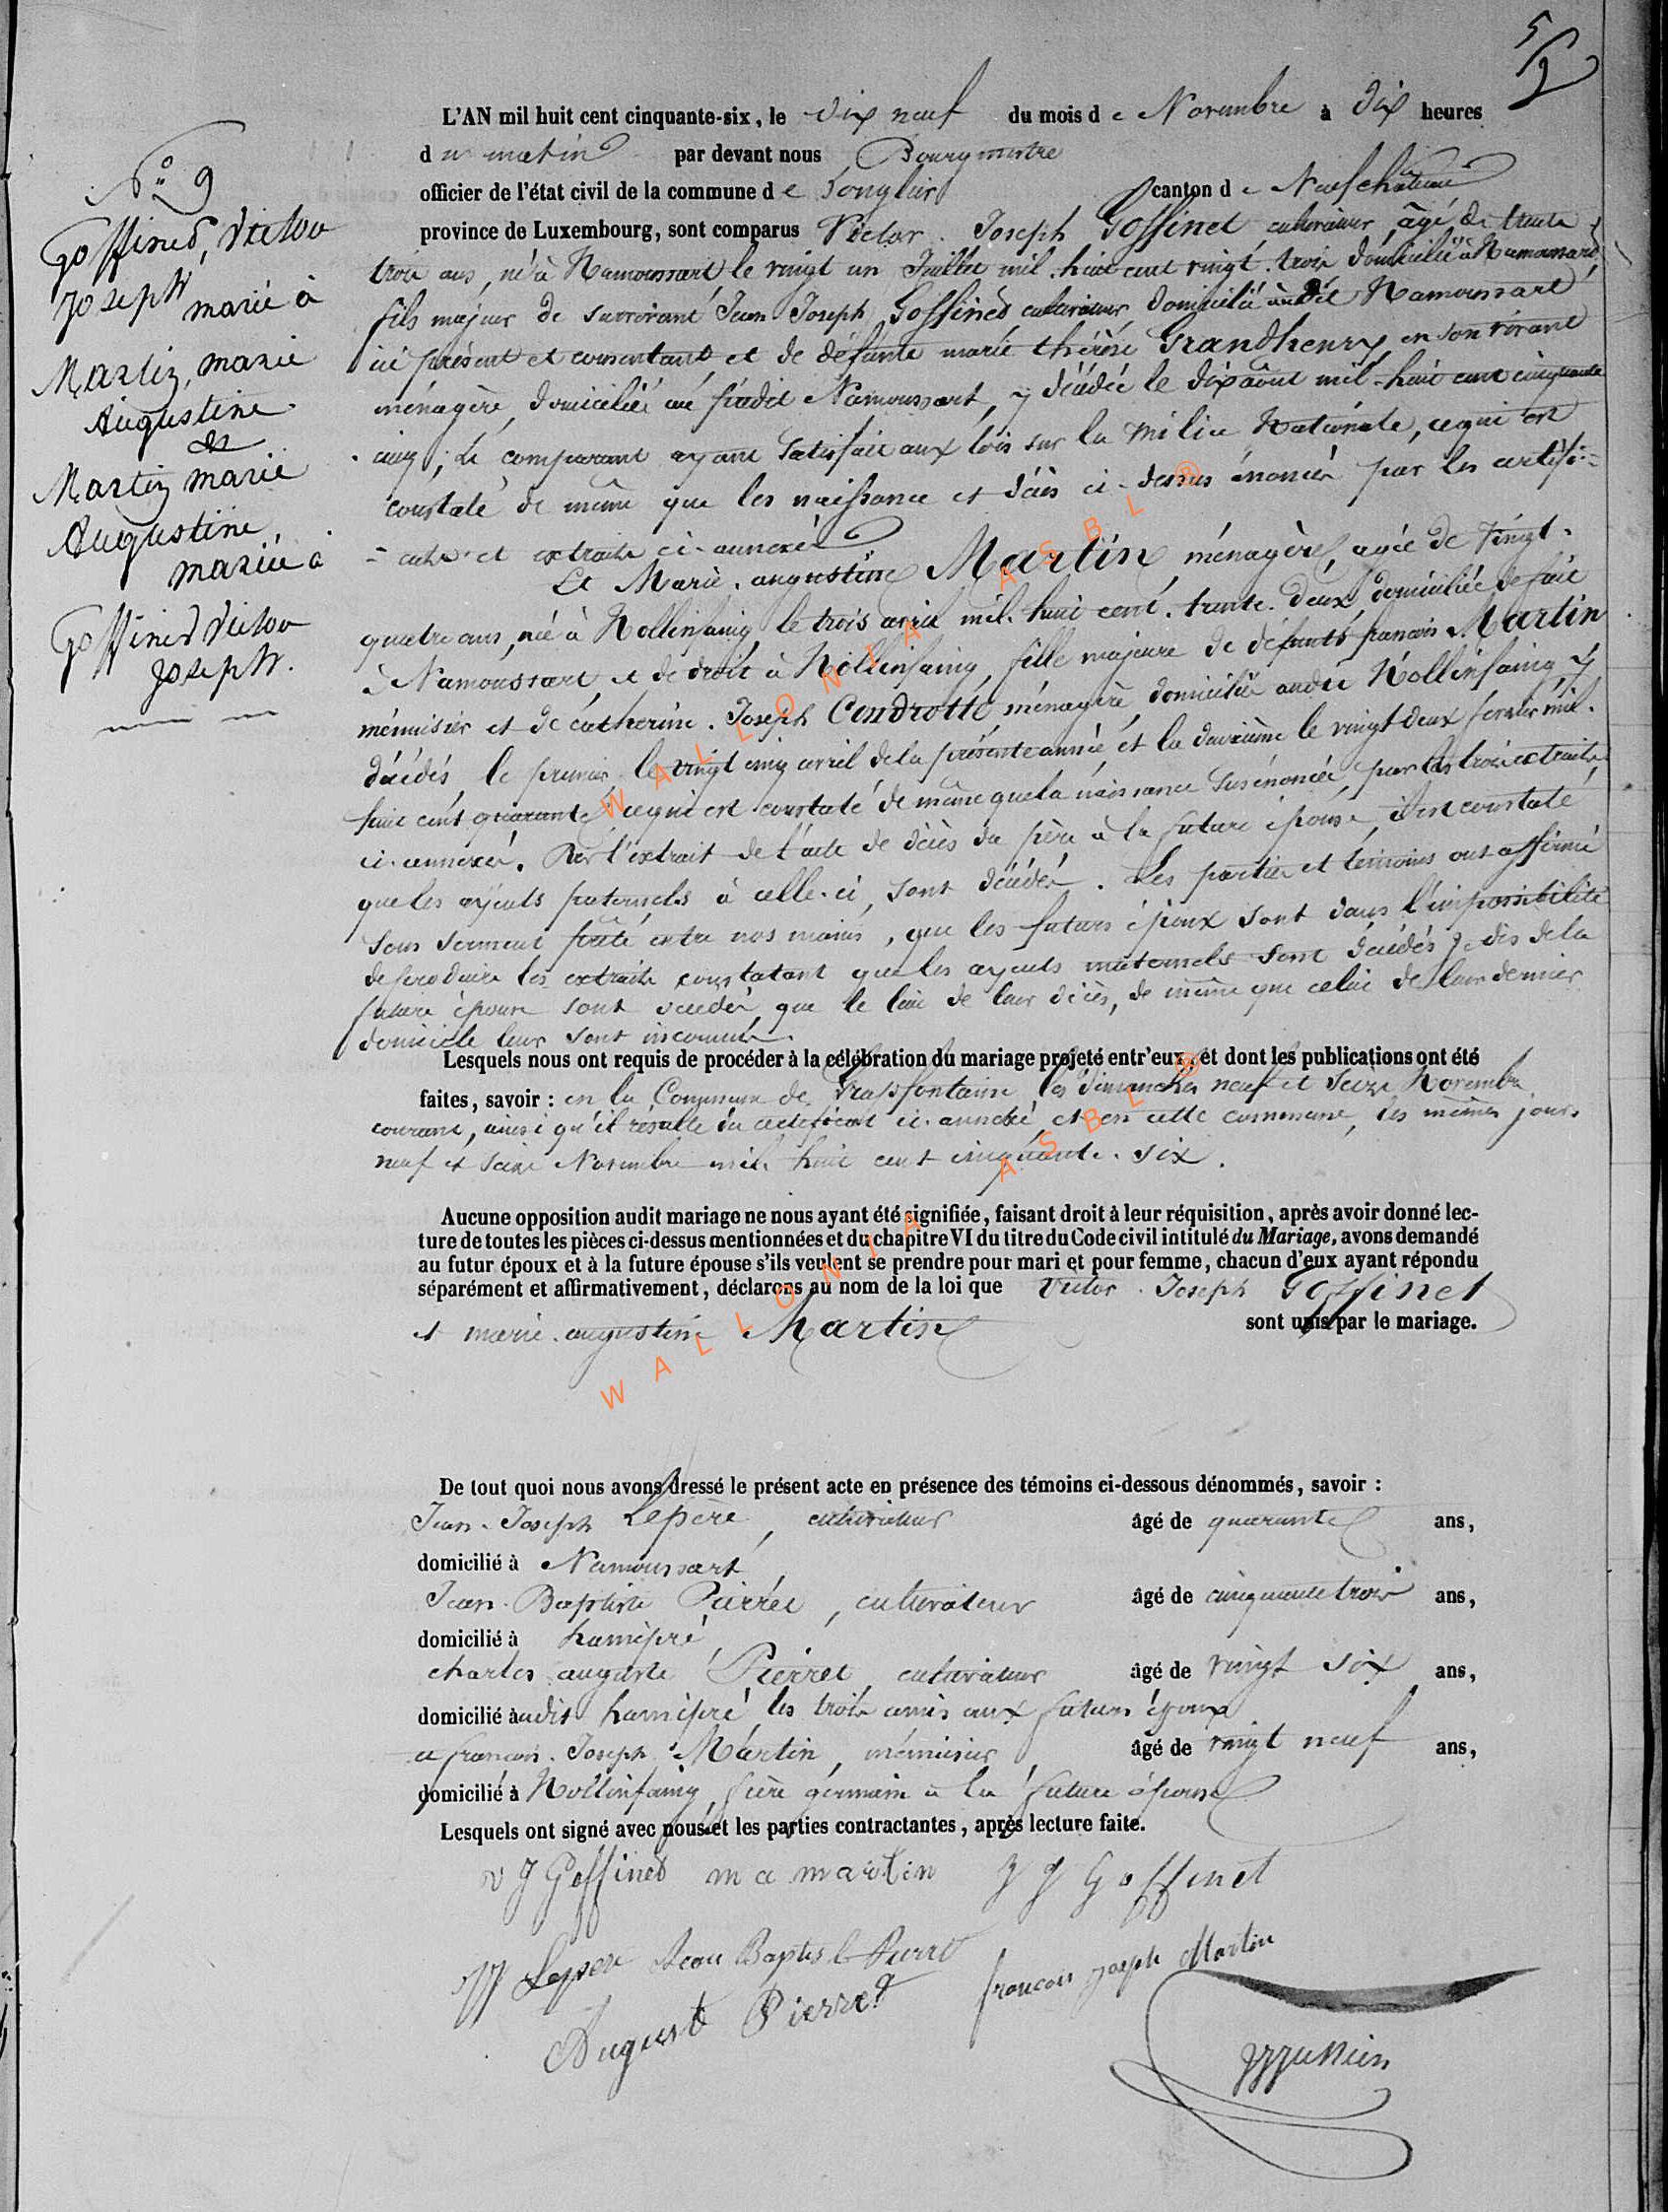 5/2
L'AN mil huit cent cinquante-six, le dix neuf du mois de Novembre à dix heures
du matin par devant nous Bourgmestre
officier de l'état civil de la commune de Longlier canton de Neufchâteau
province de Luxembourg, sont comparus Victor. Joseph Goffinet, cultivateur, âgé de trente
trois ans, né à Namoussart le vingt un Juillet mil. huit cent vingt. trois domicilié à Namoussart,
fils majeur de survivant Jean Joseph Goffinet cultivateur domicilié audit Namoussart
ici présent et consentant, et de défunte marie thérèse Grandhenry, en son vivant
ménagère, domiciliée au prédit Namoussart, y décédée le dix août mil-huit cent cinquante
cinq; Le comparant ayant satisfait aux lois sur la milice Nationale, ce qui est
constaté de même que les naissance et décès ci-dessus énoncés par les certifi=
=cats et extraits ci-annexés
Et Marie. augustine Martin ménagère, agée de Vingt-
quatre ans, née à Nollinfaing le trois avril mil. huit cent. trente. deux, domiciliée de fait
à Namoussart, et de droit à Nollinfaing, fille majeure de défunts francois Martin
ménuisier et de catherine. Joseph Condrotte ménagère, domiciliés audit Nollinfaing, y
décédés, le premier le vingt cinq avril de la présente année, et la deuxième le vingt deux février mil.
huit cent quarante, ce qui est constaté de même que la naissance susénoncée, par les trois extraits
ci-annexés. Par l'extrait de l'acte de décès du père à la future épouse, il est constaté
que les ayeuls paternels à celle-ci, sont décédés. Les parties et témoins ont affirmé
sous serment prêté entre nos mains, que les futurs époux sont dans l'impossibilité
de produire les extraits constatant que les ayeuls maternels sont décédés de la
future épouse sont décédés, que le lieu de leur décès, de même que celui de leur dernier
domicile leur sont inconnus.
Lesquels nous ont requis de procéder à la célébration du mariage projeté entr'eux, et dont les publications ont été
faites, savoir : en la Commune de Grapfontaine, les dimanches neuf et seize Novembre
courant, ainsi qu'il résulte du certificat ci-annexé, et en cette commune, les mêmes jours
neuf et seize Novembre mil. huit cent cinquante. six.
Aucune opposition audit mariage ne nous ayant été signifiée, faisant droit à leur réquisition, après avoir donné lec-
ture de toutes les pièces ci-dessus mentionnées et du chapitre VI du titre du Code civil intitulé du Mariage, avons demandé
au futur époux et à la future épouse s'ils veulent se prendre pour mari et pour femme, chacun d'eux ayant répondu
séparément et affirmativement, déclarons au nom de la loi que Victor. Joseph Goffinet
et marie. augustine Martin sont unis par le mariage.
De tout quoi nous avons dressé le présent acte en présence des témoins ci-dessous dénommés, savoir :
Jean-Joseph Lepère, cultivateur âgé de quarante ans,
domicilié à Namoussart
Jean-Baptiste Pierret, cultivateur âgé de cinquante trois ans,
domicilié à hamipré
charles auguste Pierret cultivateur âgé de vingt six ans,
domicilié audit hamipré les trois amis aux futurs époux
et francois. Joseph Martin, ménuisier âgé de vingt neuf ans,
domicilié à Nollinfaing, frère germain à la future épouse
Lesquels ont signé avec nous et les parties contractantes, après lecture faite.
v J Goffinet m a martin J J Goffinet
JJ Leper Jean Baptist Pierret francois joseph Martin
August Pierret
No 9
Goffined, Victor
Joseph marié à
Martin, marie
Augustine
&
Martin marie
Augustine
mariée à
Goffined Victor
Joseph.
WALLONIA ASBL ®
WALLONIA ASBL ®